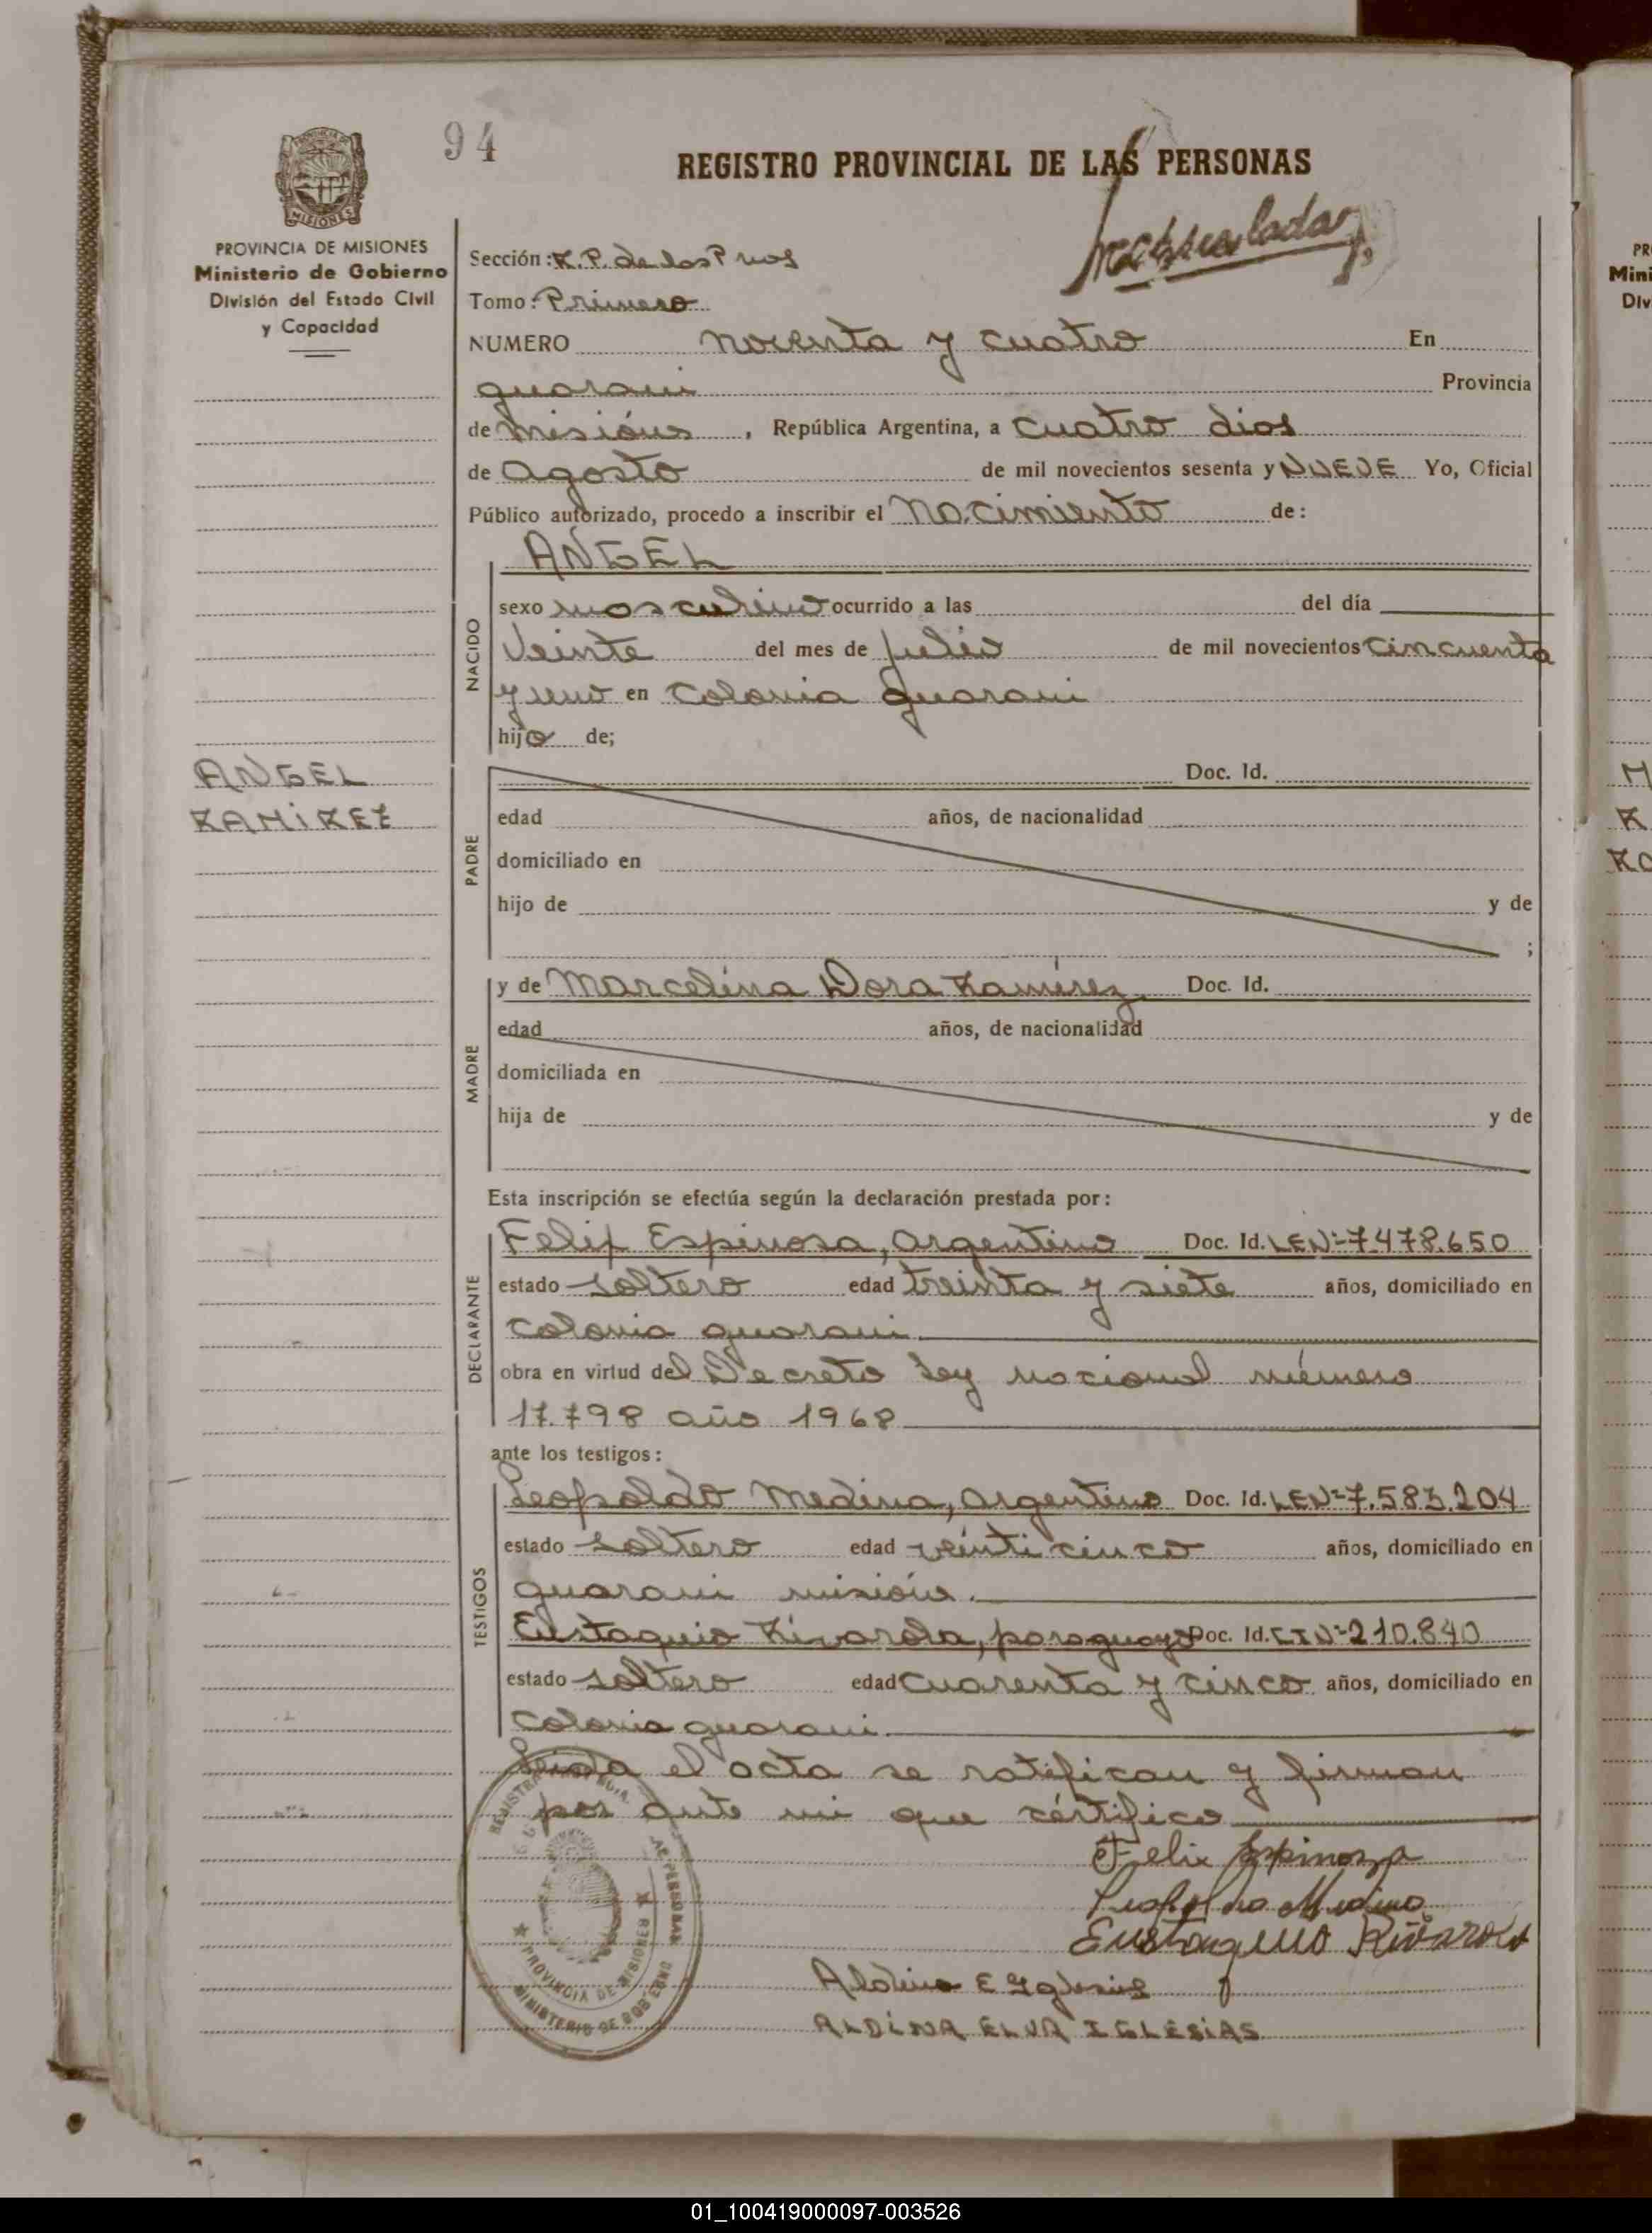 94
REGISTRO PROVINCIAL DE LAS PERSONAS
PROVINCIA DE MISIONES
Ministerio de Gobierno
División del Estado Civil
y Capacidad
Sección: R.P. de las P
Tomo: Primero
NUMERO noventa y cuatro En
guarani Provincia
de misiónes, República Argentina, a cuatro dias
de agosto de mil novecientos sesenta y NUEVE Yo, Oficial
Público autorizado, procedo a inscribir el nacimiento de:
ANGEL
NACIDO
sexo masculino ocurrido a las del día
Veinte del mes de julio de mil novecientos cincuenta
y uno en Colonia guarani
hijo de;
ANGEL
RAMIREZ
PADRE
Doc. Id.
edad años, de nacionalidad
domiciliado en
hijo de y de
;
MADRE
y de Marcelina Dora Ramirez Doc. Id.
edad años, de nacionalidad
domiciliada en
hija de y de
Esta inscripción se efectúa según la declaración prestada por:
DECLARANTE
Felix Espinosa, argentino Doc. Id. LENº 7.478.650
estado soltero edad treinta y siete años, domiciliado en
colonia guarani
obra en virtud del Decreto Ley nacional número
17.798 año 1968
ante los testigos:
TESTIGOS
Leopoldo Medina, argentino Doc. Id. LENº 7.583.204
estado soltero edad veinticinco años, domiciliado en
guarani misión.
Eustaquio Rivarola, paraguayo Doc. Id. CINº 210.840
estado soltero edad cuarenta y cinco años, domiciliado en
Colonia guarani
Leida el acta se ratifican y firman
por ante mi que certifico
Felix Espinoza
Leopoldo Medina
Eustaquio Rivarola
Aldina E Iglesias
ALDINA ELVA IGLESIAS
PROVINCIA DE MISIONES
MINISTERIO DE GOBIERNO
01_100419000097-003526